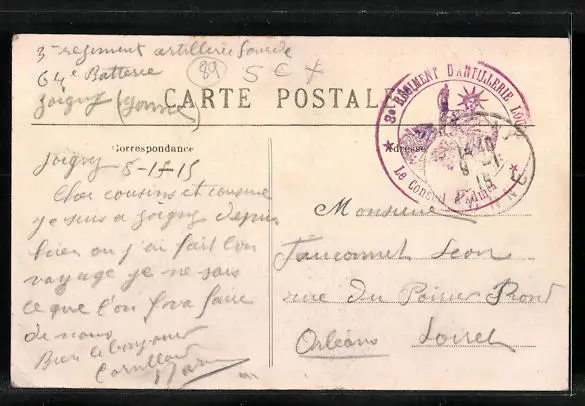 3e regiment artillerie lourde
64e Batterie
89
5 € +
Joigny (Yonne)
CARTE POSTALE
Correspondance
Adresse
3e RÉGIMENT D'ARTILLERIE LOURDE
Le Conseil d'admin
14-40
8 -1
15
Joigny 8-1-15
Cher cousins et cousine
je suis a Joigny depuis
hier ou j'ai fait bon
voyage je ne sais
ce que l'on fera faire
de nous
Bien le bonjour
Monsieur
Leon
rue du Poirier Rond
Orléans Loiret